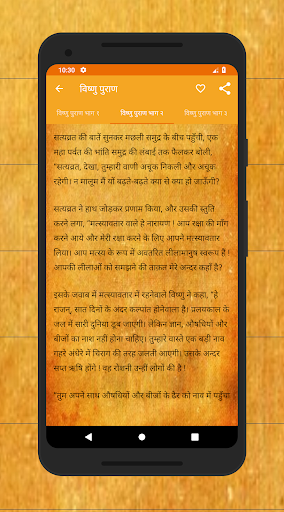 10:30
विष्णु पुराण
विष्णु पुराण भाग १ विष्णु पुराण भाग २ विष्णु पुराण भाग ३
सत्यव्रत की बातें सुनकर मछली समुद्र के बीच पहुँची, एक
महा पर्वत की भांति समुद्र की लंबाई तक फैलकर बोली,
"सत्यव्रत, देखा, तुम्हारी वाणी अचूक निकली और अचूक
रहेगी। न मालूम मैं यों बढ़ते-बढ़ते क्या से क्या हो जाऊँगी?
सत्यव्रत ने हाथ जोड़कर प्रणाम किया, और उसकी स्तुति
करने लगा, "मत्स्यावतार वाले हे नारायण ! आप रक्षा की माँग
करने आये और मेरी रक्षा करने के लिए आपने मत्स्यावतार
लिया। आप मत्स्य के रूप में अवतरित लीलामानुष स्वरूप हैं !
आपकी लीलाओं को समझने की ताक़त मेरे अन्दर कहाँ है?
इसके जवाब में मत्स्यावतार में रहनेवाले विष्णु ने कहा, "हे
राजन्, सात दिनों के अंदर कल्पांत होनेवाला है। प्रलयकाल के
जल में सारी दुनिया डूब जाएगी। लेकिन ज्ञान, औषधियों और
बीजों का नाश नहीं होना चाहिए। तुम्हारे वास्ते एक बड़ी नाव
गहरे अंधेरे में चिराग की तरह जलती आएगी। उसके अन्दर
सप्त ऋषि होंगे ! वह रोशनी उन्हीं लोगों की है !
"तुम अपने साथ औषधियों और बीजों के ढेर को नाव में पहुँचा